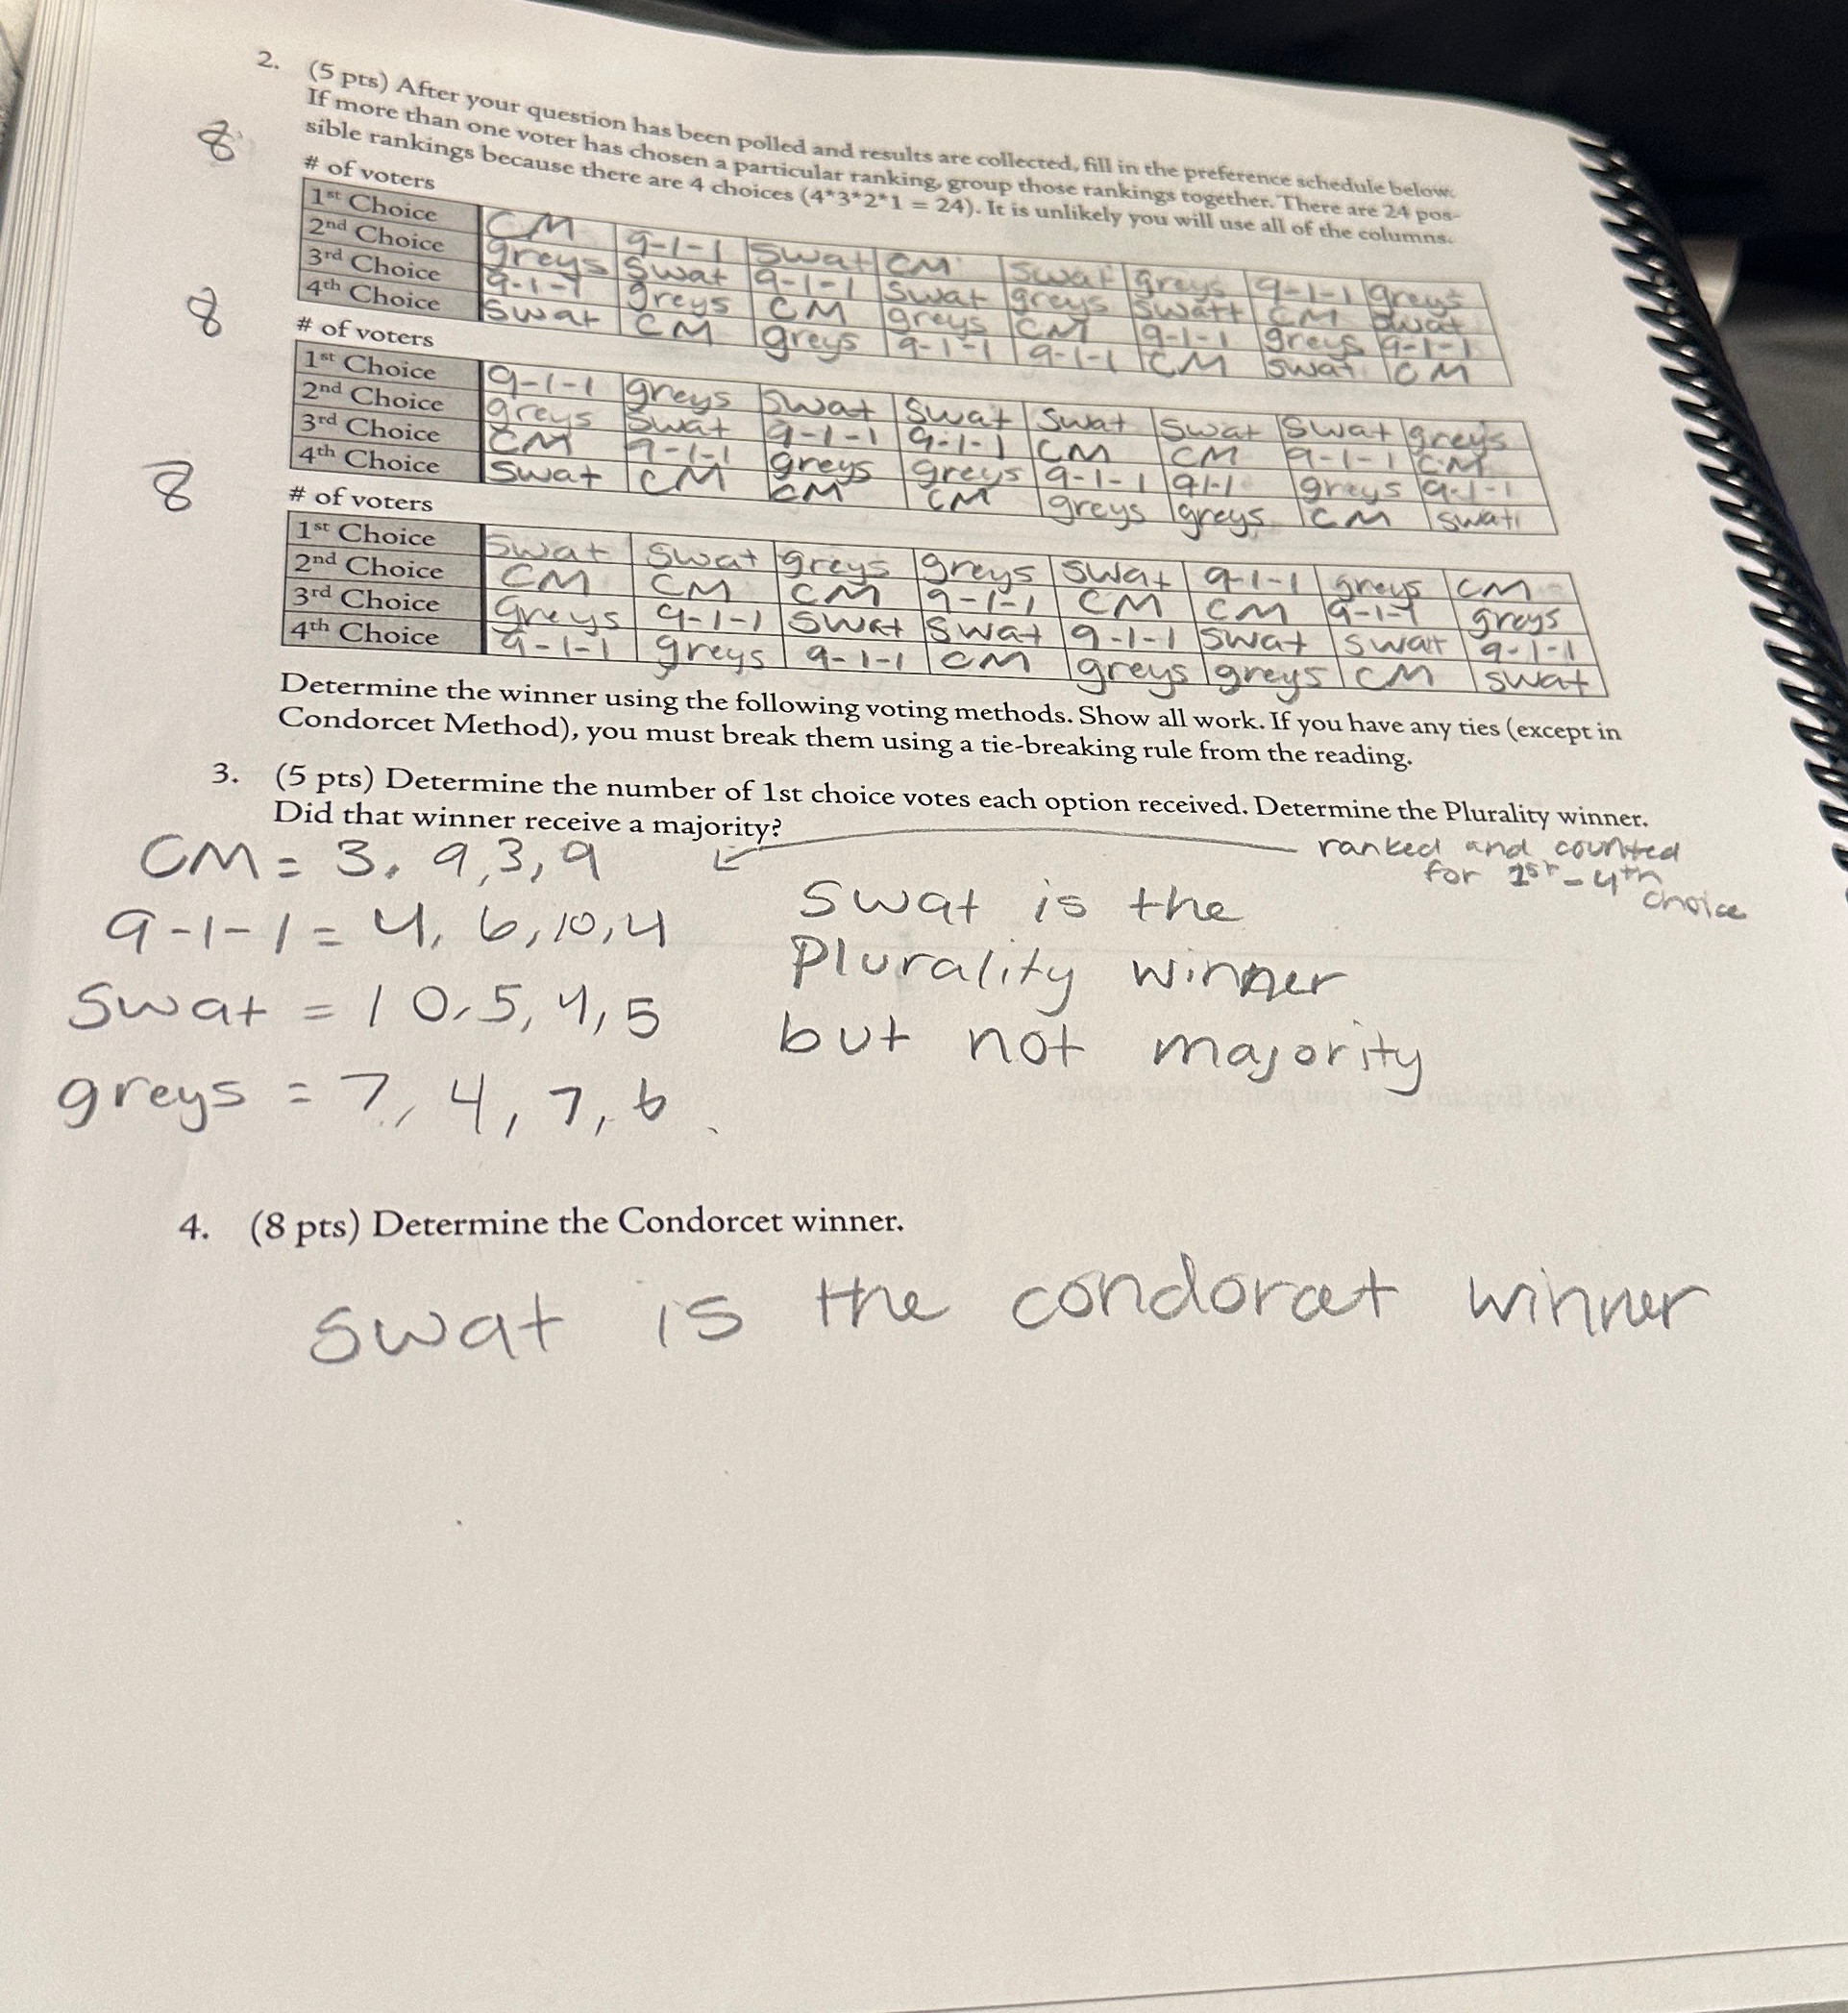 2. (5 pts) After your question has been polled and results are collected, fill in the preference schedule below.
If more than one voter has chosen a particular ranking, group those rankings together. There are 24 pos-
sible rankings because there are 4 choices (4*3*2*1 = 24). It is unlikely you will use all of the columns.
8
# of voters
1st Choice CM 9-1-1 Swat CM Swat greys 9-1-1 greys
2nd Choice greys Swat 9-1-1 Swat greys Swatt CM Swat
3rd Choice 9-1-1 greys CM greys CM 9-1-1 greys 9-1-1
4th Choice Swat CM greys 9-1-1 9-1-1 CM Swat CM
8
# of voters
1st Choice 9-1-1 greys Swat Swat Swat Swat Swat greys
2nd Choice greys Swat 9-1-1 9-1-1 CM CM 9-1-1 CM
3rd Choice CM 9-1-1 greys greys 9-1-1 91-1 greys 9-1-1
4th Choice Swat CM CM CM greys greys CM Swat
8
# of voters
1st Choice Swat Swat greys greys Swat 9-1-1 greys CM
2nd Choice CM CM CM 9-1-1 CM CM 9-1-1 greys
3rd Choice Greys 9-1-1 Swat Swat 9-1-1 Swat Swat 9-1-1
4th Choice 9-1-1 greys 9-1-1 CM greys greys CM Swat
Determine the winner using the following voting methods. Show all work. If you have any ties (except in
Condorcet Method), you must break them using a tie-breaking rule from the reading.
3. (5 pts) Determine the number of 1st choice votes each option received. Determine the Plurality winner.
Did that winner receive a majority?
ranked and counted
for 1st-4th
choice
CM = 3, 9, 3, 9
9-1-1 = 4, 6, 10, 4
Swat = 10, 5, 4, 5
greys = 7, 4, 7, 6
Swat is the
Plurality winner
but not majority
4. (8 pts) Determine the Condorcet winner.
Swat is the condorcet winner